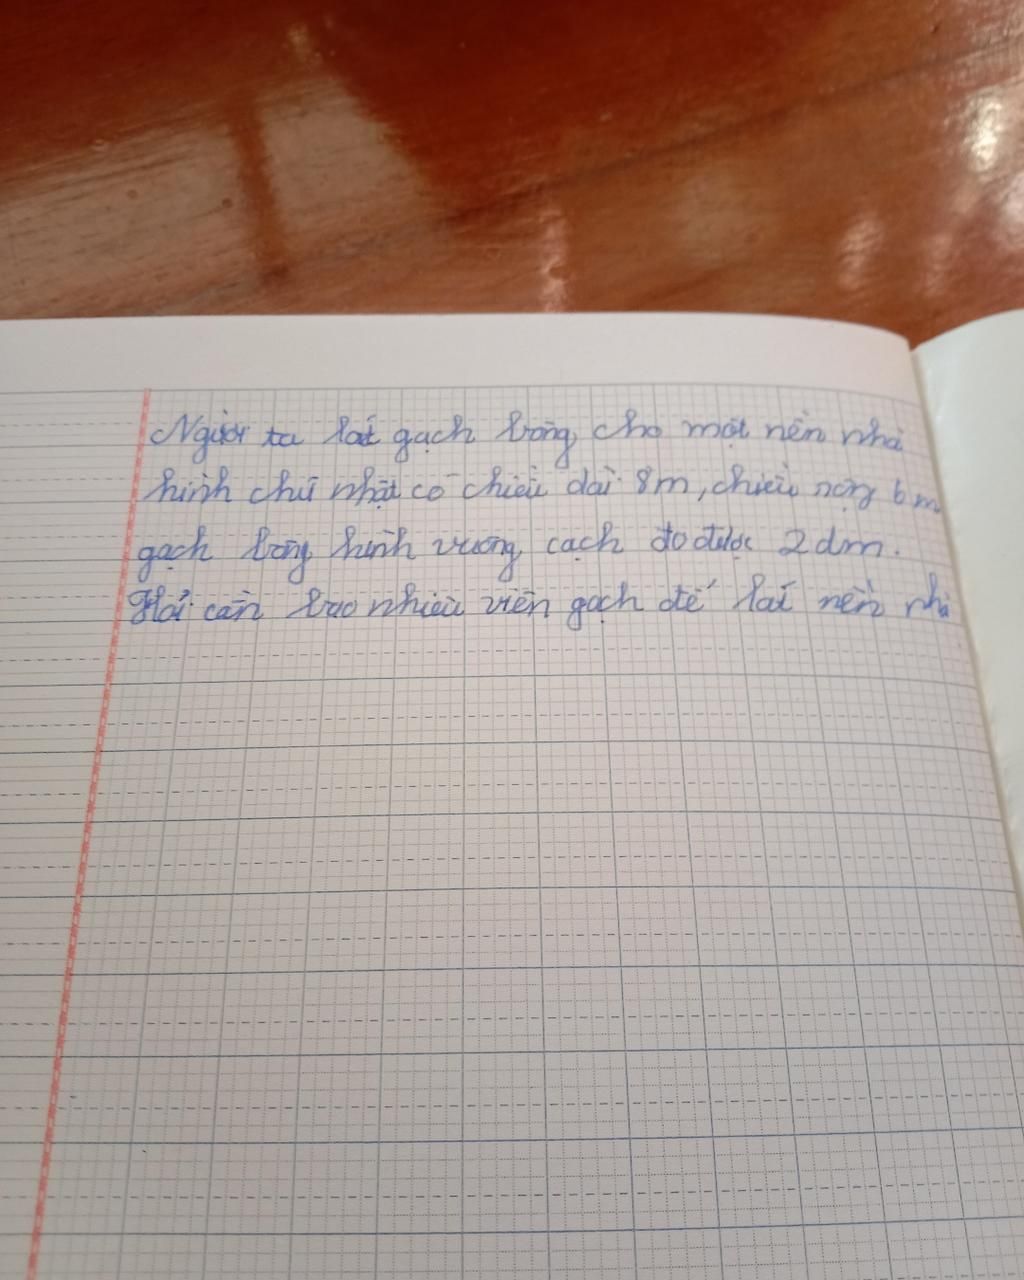 Người ta lát gạch bông cho một nền nhà
hình chữ nhật có chiều dài 8m, chiều rộng 6m
gạch bông hình vuông cạch đo được 2dm.
Hỏi cần bao nhiêu viên gạch để lát nền nhà